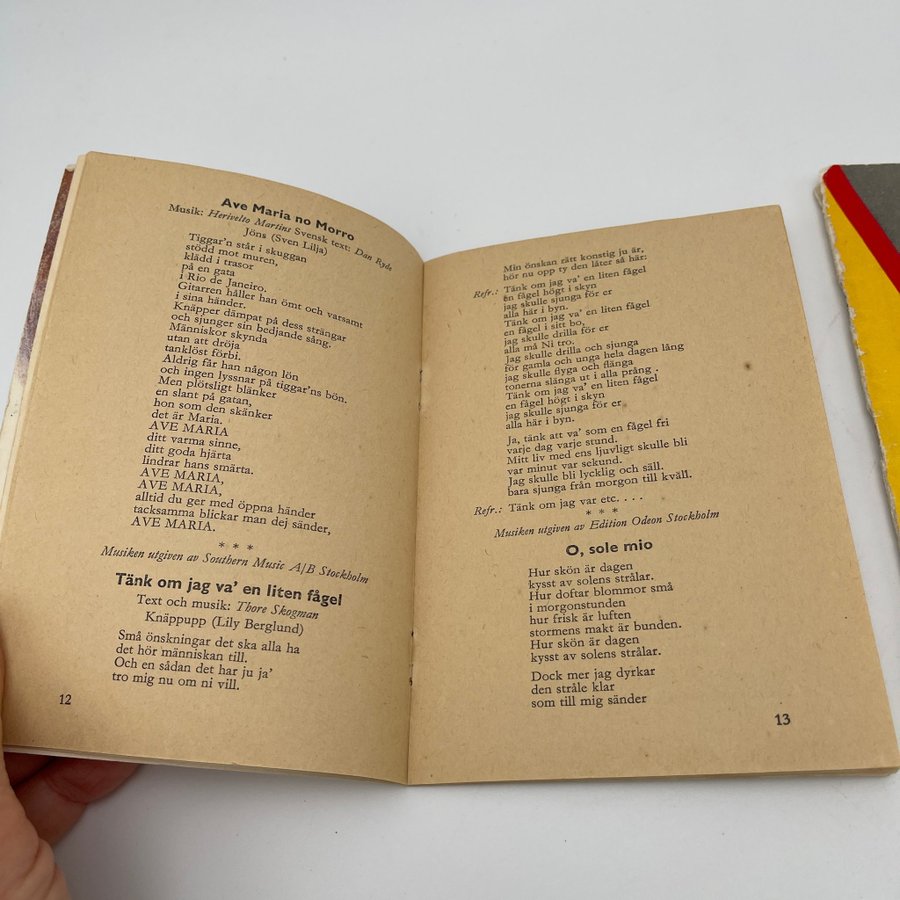 Ave Maria no Morro
Musik: Herivelto Martins Svensk text: Dan Ryde
Jöns (Sven Lilja)
Tiggar'n står i skuggan
stödd mot muren,
klädd i trasor
på en gata
i Rio de Janeiro.
Gitarren håller han ömt och varsamt
i sina händer.
Knäpper dämpat på dess strängar
och sjunger sin bedjande sång.
Människor skynda
utan att dröja
tanklöst förbi.
Aldrig får han någon lön
och ingen lyssnar på tiggar'ns bön.
Men plötsligt blänker
en slant på gatan,
hon som den skänker
det är Maria.
AVE MARIA
ditt varma sinne,
ditt goda hjärta
lindrar hans smärta.
AVE MARIA,
AVE MARIA,
alltid du ger med öppna händer
tacksamma blickar man dej sänder,
AVE MARIA.
* * *
Musiken utgiven av Southern Music A/B Stockholm
Tänk om jag va' en liten fågel
Text och musik: Thore Skogman
Knäppupp (Lily Berglund)
Små önskningar det ska alla ha
det hör människan till.
Och en sådan det har ju ja'
tro mig nu om ni vill.
12
Min önskan rätt konstig ju är,
hör nu opp ty den låter så här:
Refr.: Tänk om jag va' en liten fågel
en fågel högt i skyn
jag skulle sjunga för er
alla här i byn.
Tänk om jag va' en liten fågel
en fågel i sitt bo,
jag skulle drilla för er
alla må Ni tro.
Jag skulle drilla och sjunga
för gamla och unga hela dagen lång
jag skulle flyga och flänga
tonerna slänga ut i alla prång.
Tänk om jag va' en liten fågel
en fågel högt i skyn
jag skulle sjunga för er
alla här i byn.
Ja, tänk att va' som en fågel fri
varje dag varje stund.
Mitt liv med ens ljuvligt skulle bli
var minut var sekund.
Jag skulle bli lycklig och säll.
bara sjunga från morgon till kväll.
Refr.: Tänk om jag var etc. . . .
* * *
Musiken utgiven av Edition Odeon Stockholm
O, sole mio
Hur skön är dagen
kysst av solens strålar.
Hur doftar blommor små
i morgonstunden
hur frisk är luften
stormens makt är bunden.
Hur skön är dagen
kysst av solens strålar.
Dock mer jag dyrkar
den stråle klar
som till mig sänder
13